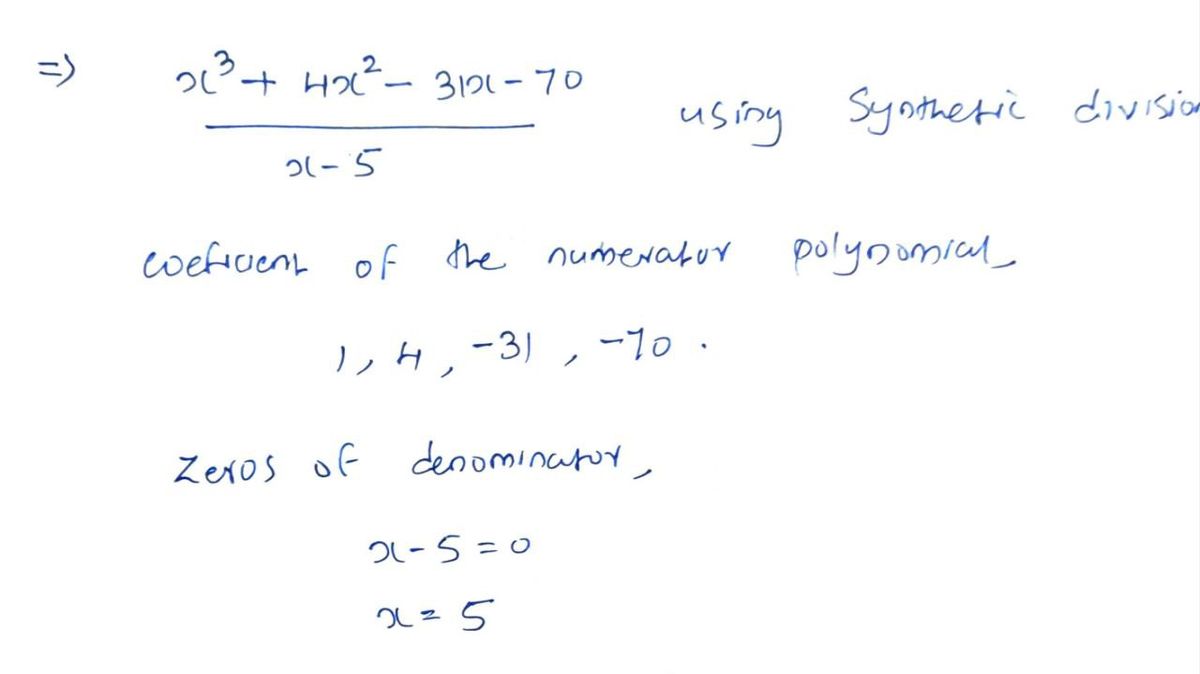 => x³ + 4x² - 31x - 70 / x - 5 using Synthetic division
coeficient of the numerator polynomial,
1, 4, -31, -70.
Zeros of denominator,
x - 5 = 0
x = 5